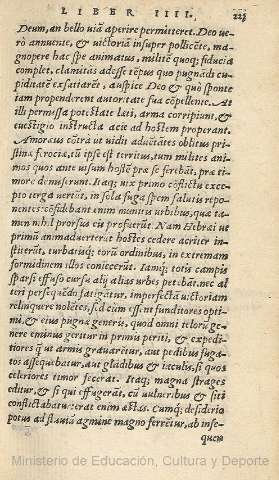 LIBER IIII. 223
Deum, an bello uiā aperire permitteret. Deo ue-
rò annuente, & uictoriā insuper pollicēte, ma-
gnopere hac spe animatus, militē quoq; fiducia
complet, clamitās adesse tēpus quo pugnādi cu-
piditatē exsatiarēt, auspice Deo & quò sponte
tam propenderent autoritate sua cōpellente. At
illi permissa potestate læti, arma corripiunt, &
euestigio instructa acie ad hostem properant.
Amoræus cōtrà ut uidit aduētātes oblitus pri-
stinæ ferociæ, tū ipse est territus, tum milites ani-
mos quos ante uisum hostē præ se ferebāt, præ ti-
more demiserunt. Itaq; uix primo cōflictu exce-
pto terga uertūt, in sola fuga spem salutis repo-
nentes: cōfidebant enim munitis urbibus, quæ ta-
men nihil prorsus eis profuerūt. Nam Hebræi ut
primū animaduerterūt hostes cedere acriter in-
stiterūt, turbatisq; eorū ordinibus, in extremam
formidinem illos coniecerūt. Iamq; totis campis
sparsi effuso cursu alij alias urbes petebāt: nec al
teri persequēdo fatigātur, imperfectā uictoriam
relinquere nolētes, sed cum essent funditores opti-
mi, & eius pugnæ generis, quod omni telorū ge-
nere eminus geritur in primis periti, & expedi-
tiores q̃ ut armis grauarētur, aut pedibus fuga-
tos assequebātur, aut glādibus & iaculis, si quos
celeriores timor fecerat. Itaq; magna strages
editur, & si qui effugerāt, cū uulneribus & siti
conflictabātur: erat enim æstas. Cumq; desiderio
potus ad flauiū agmine magno ferrētur, ab inse-
quen
Ministerio de Educación, Cultura y Deporte